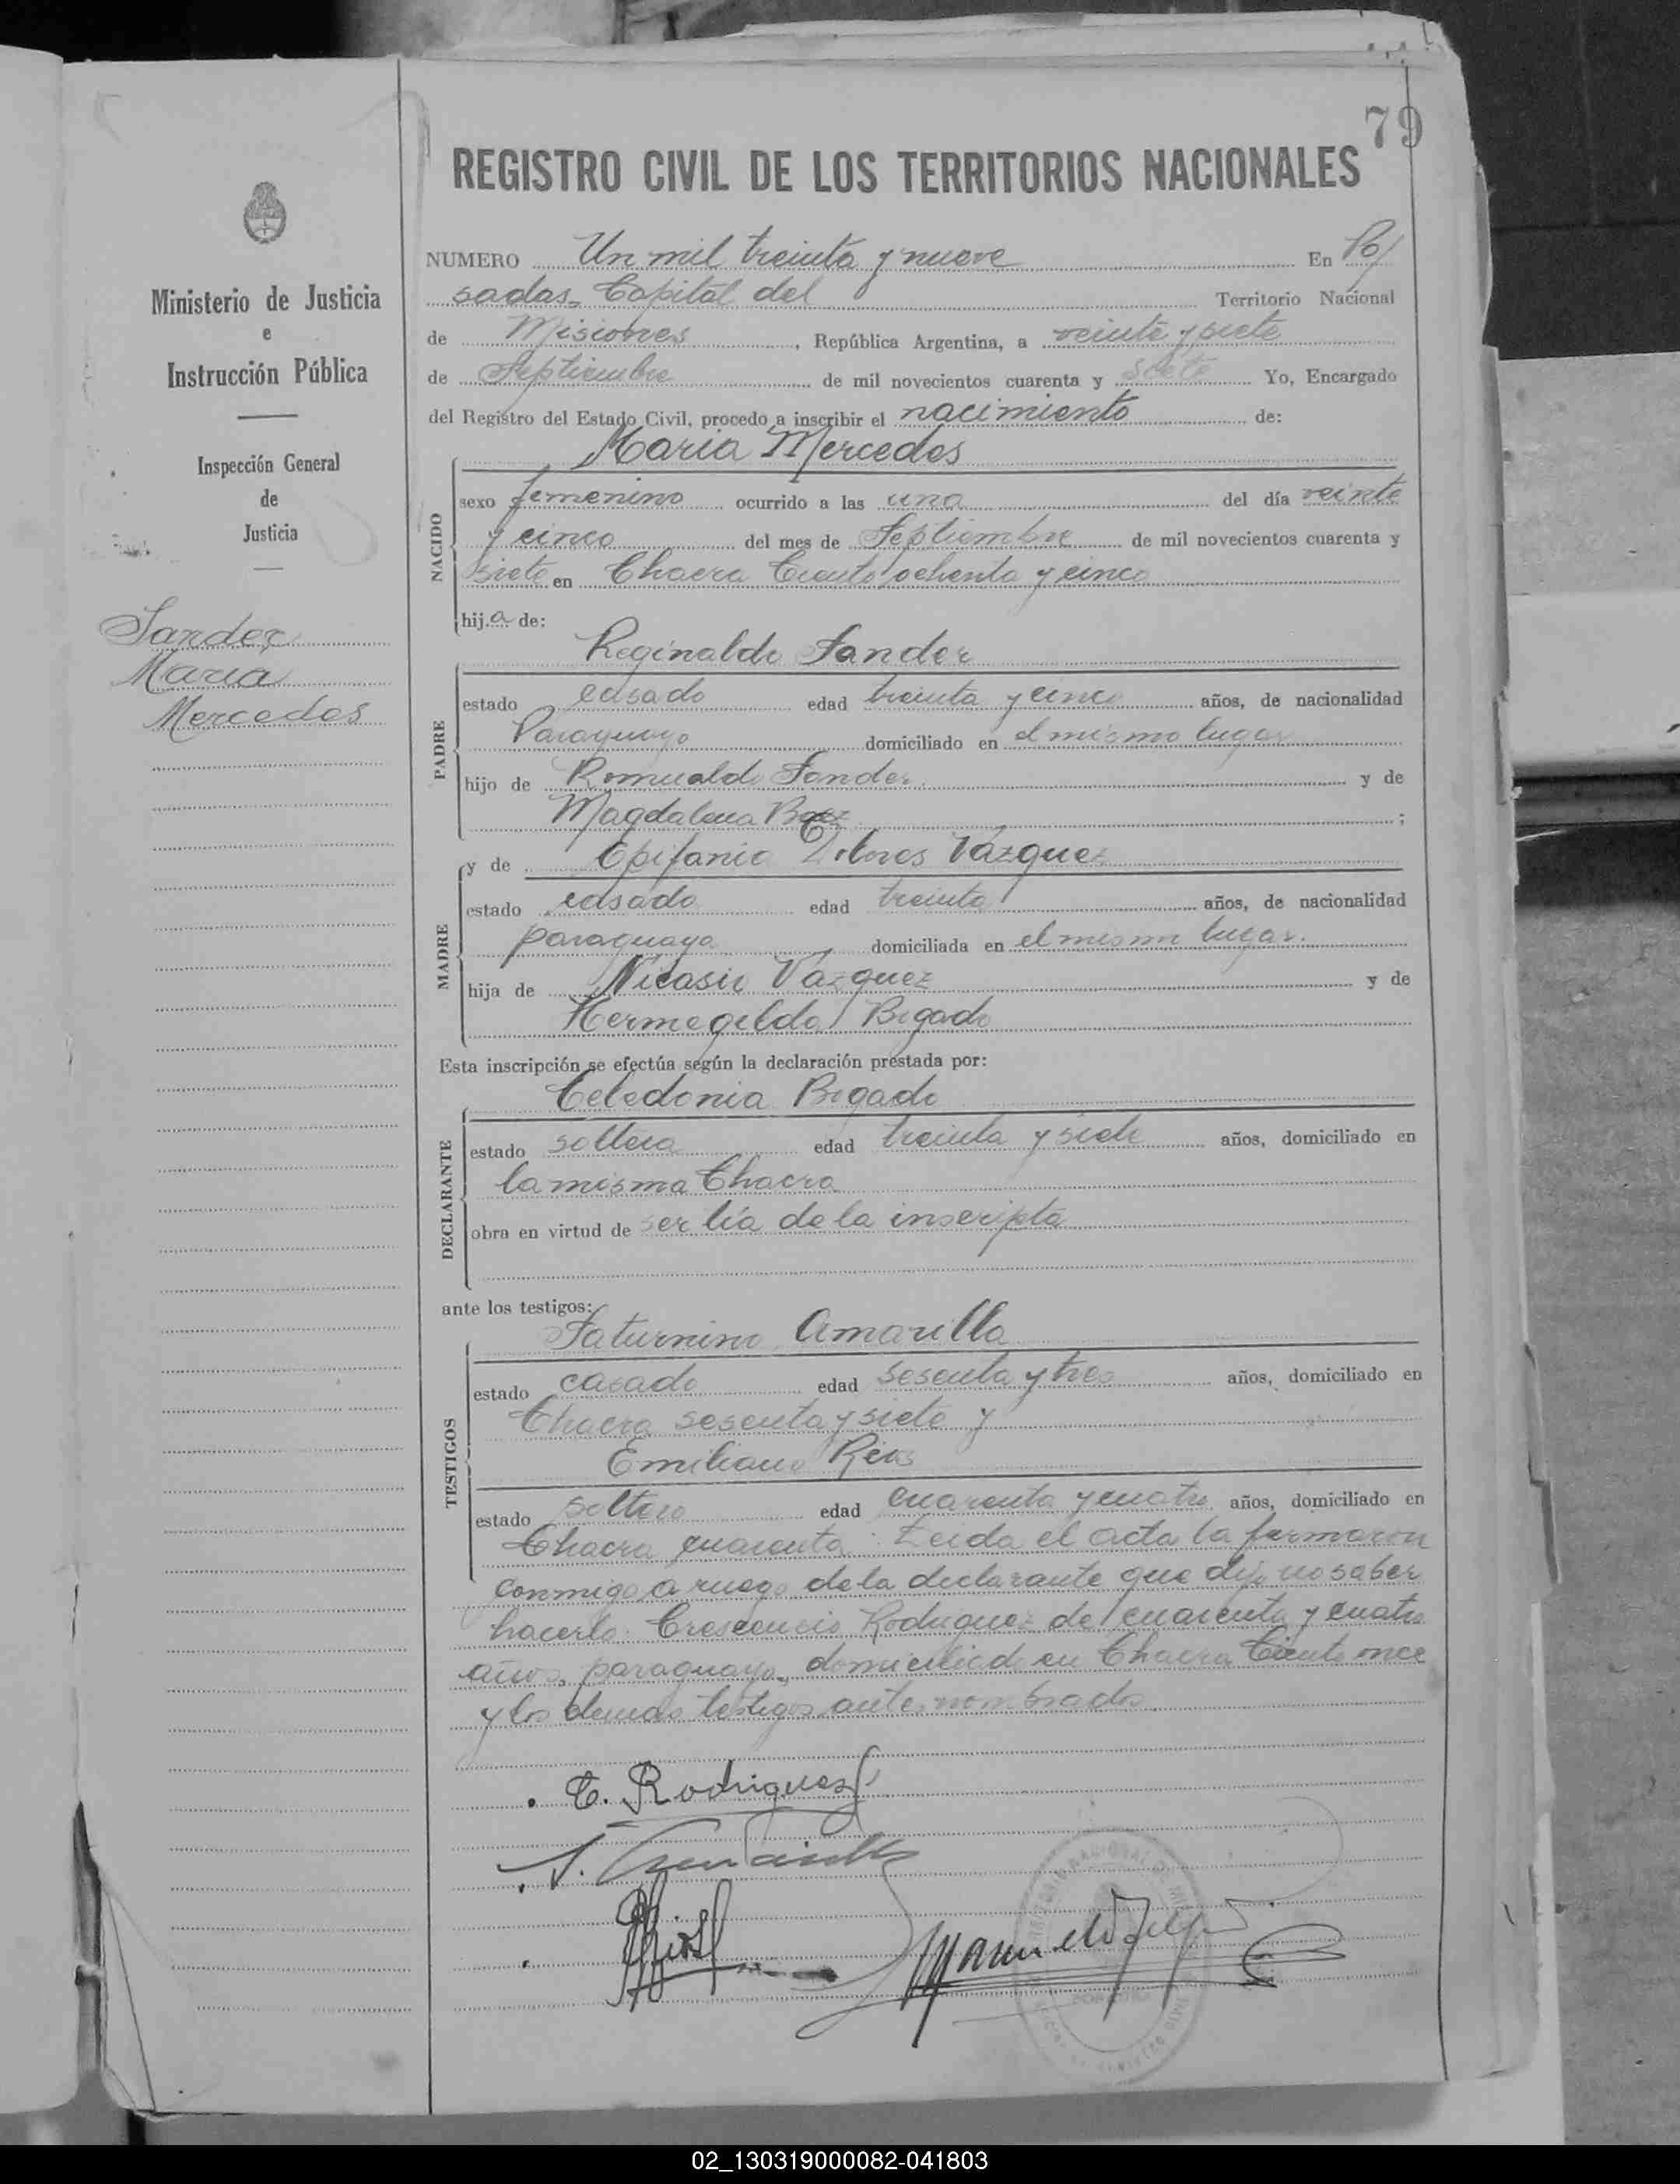 79
REGISTRO CIVIL DE LOS TERRITORIOS NACIONALES
Ministerio de Justicia
e
Instrucción Pública
Inspección General
de
Justicia
Sander
Maria
Mercedes
NUMERO Un mil treinta y nueve En Po/
sadas, Capital del Territorio Nacional
de Misiones, República Argentina, a veinte y siete
de Septiembre de mil novecientos cuarenta y siete Yo, Encargado
del Registro del Estado Civil, procedo a inscribir el nacimiento de:
Maria Mercedes
NACIDO
sexo femenino ocurrido a las una del día veinte
y cinco del mes de Septiembre de mil novecientos cuarenta y
siete en Chacra Ciento ochenta y cinco
hija de:
Reginaldo Sander
PADRE
estado casado edad treinta y cinco años, de nacionalidad
Paraguayo domiciliado en el mismo lugar
hijo de Romualdo Sander y de
Magdalena Baez;
y de Epifania Dolores Vazquez
MADRE
estado casada edad treinta años, de nacionalidad
paraguaya domiciliada en el mismo lugar.
hija de Nicasio Vazquez y de
Hermegilda Bogado
Esta inscripción se efectúa según la declaración prestada por:
Celedonia Bogado
DECLARANTE
estado soltera edad treinta y siete años, domiciliado en
la misma Chacra
obra en virtud de ser tía de la inscripta
ante los testigos:
Saturnino Amarilla
TESTIGOS
estado casado edad sesenta y tres años, domiciliado en
Chacra sesenta y siete y
Emiliano Rios
estado soltero edad cuarenta y cuatro años, domiciliado en
Chacra cuarenta. Leida el acta la firmaron
conmigo a ruego de la declarante que dijo no saber
hacerlo: Crescencio Rodriguez de cuarenta y cuatro
años, paraguayo, domiciliado en Chacra Ciento once
y los demas testigos antes nombrados
C. Rodriguez
02_130319000082-041803